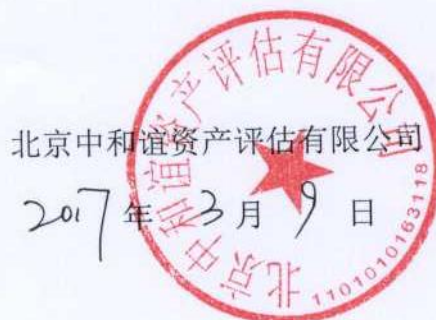 北京中和谊资产评估有限公司
2017年3月9日
北京中和谊资产评估有限公司
1101010163118